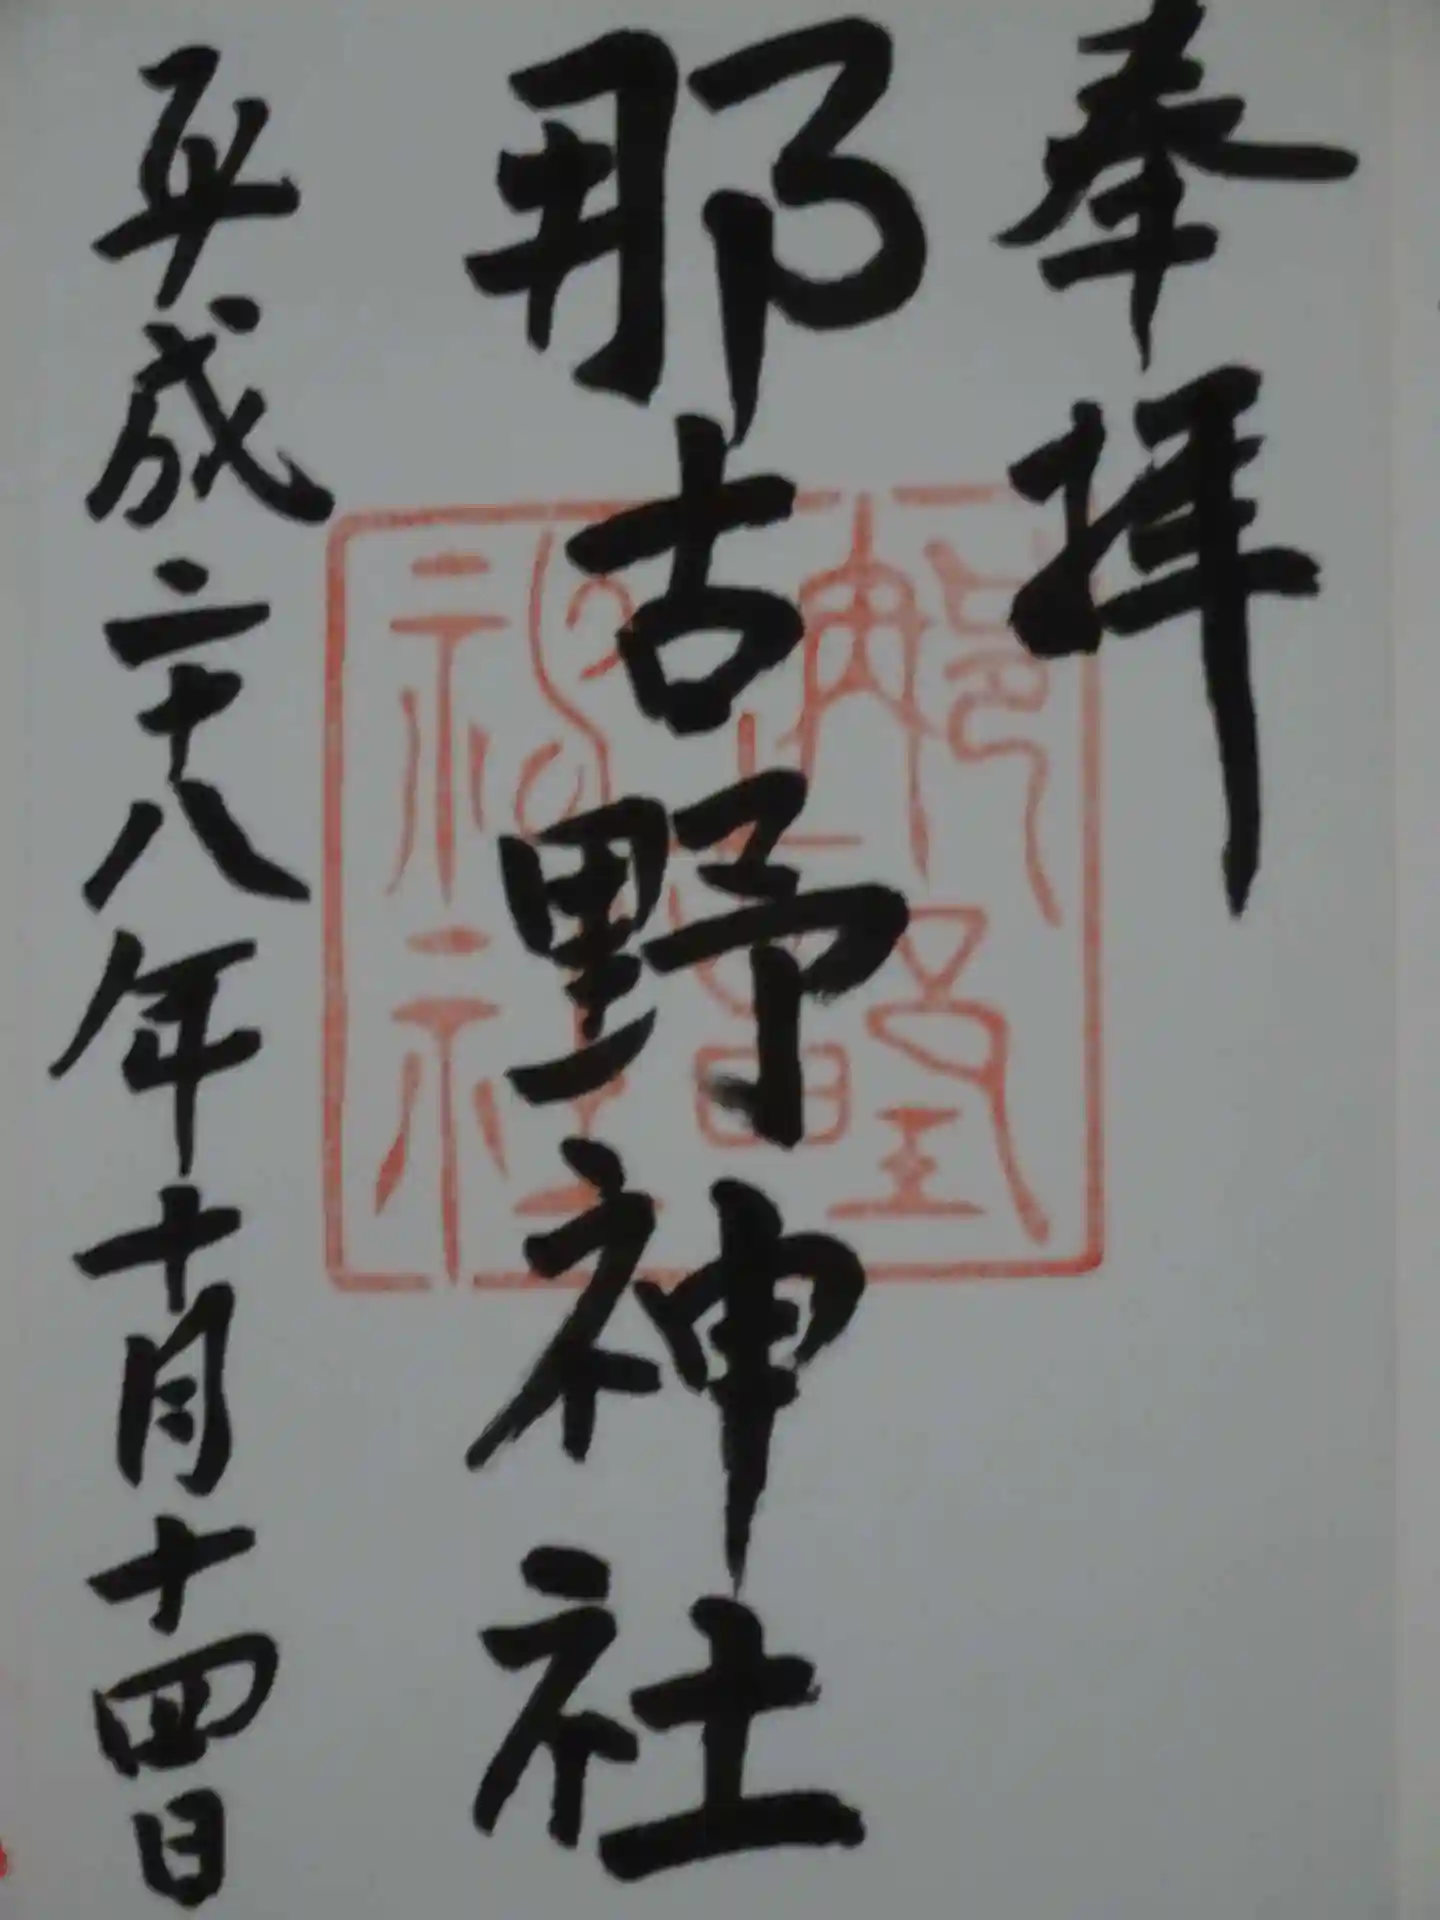 奉拝
那古野神社
平成二十八年十月十四日
那古野神社